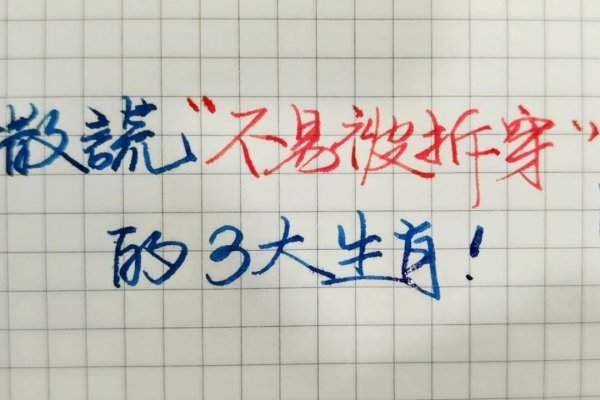 撒謊“不易被拆穿”
的3大生肖!